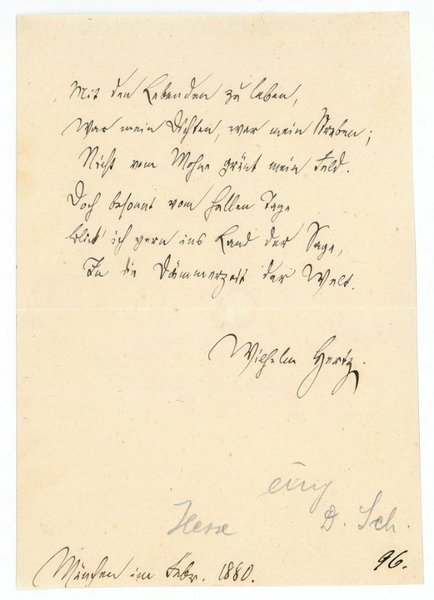 Mit den Lebenden zu leben,
War mein Dichten, war mein Streben;
Nicht vom Mohne grünt mein Feld.
Doch besonnt vom hellen Tage
Blick' ich gern ins Land der Sage,
In die Dämmerzeit der Welt.
Wilhelm Hertz.
D. Sch.
München im Febr. 1880.
96.